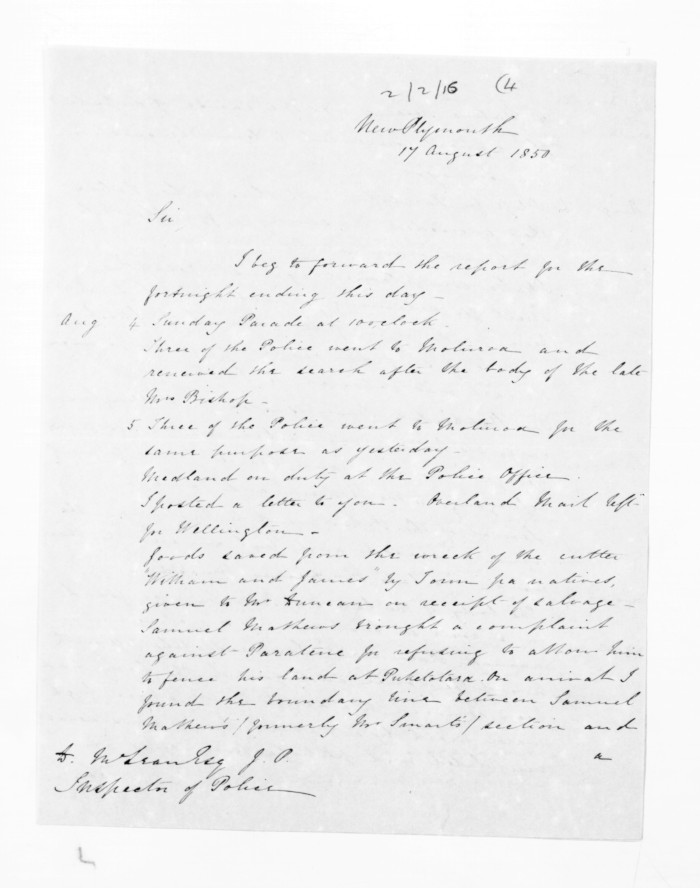 2/2/16 (4
New Plymouth
17 August 1850
Sir
I beg to forward the report for the
fortnight ending this day –
Aug 4 Sunday Parade at 10 oclock.
Three of the Police went to Moturoa and
renewed the search after the body of the late
Mrs Bishop –
5 Three of the Police went to Moturoa for the
same purpose as yesterday –
Medland on duty at the Police Office.
I posted a letter to you. Overland Mail left
for Wellington –
Goods saved from the wreck of the cutter
"William and James" by Town pa natives,
given to Mr Duncan on receipt of salvage –
Samuel Mathews brought a complaint
against Paratene for refusing to allow him
to fence his land at Puketotara. On arrival I
found the boundary line between Samuel
Mathews' / formerly Mr Smart's / section and
a
D. McLean Esq J. P.
Inspector of Police
L